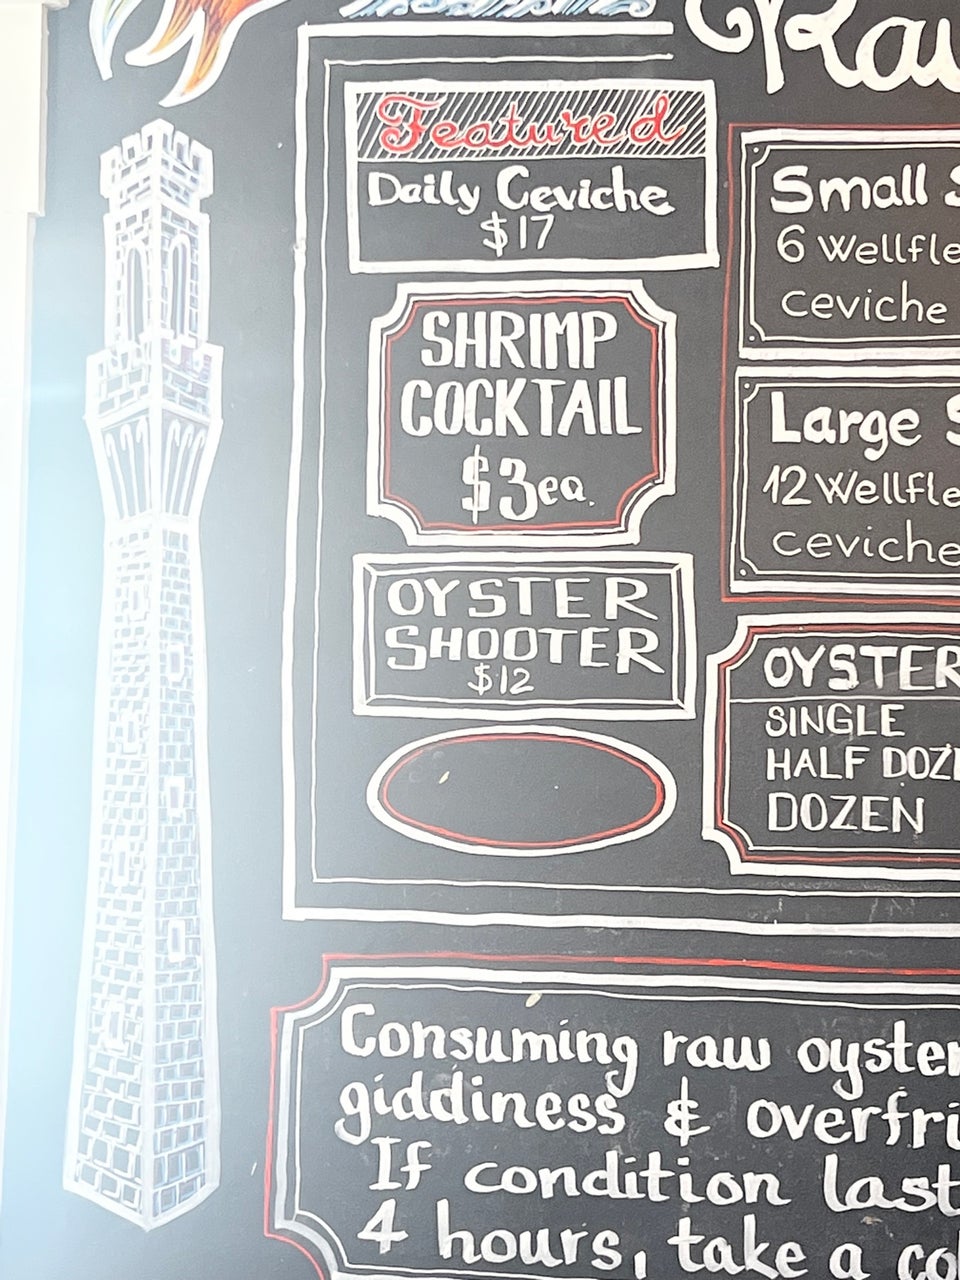 Featured
Daily Ceviche
$17
SHRIMP
COCKTAIL
$3ea.
OYSTER
SHOOTER
$12
Small
6 Wellfle
ceviche
Large
12 Wellfle
ceviche
OYSTER
SINGLE
HALF DOZE
DOZEN
Consuming raw oyster
giddiness & overfri
If condition last
4 hours, take a co